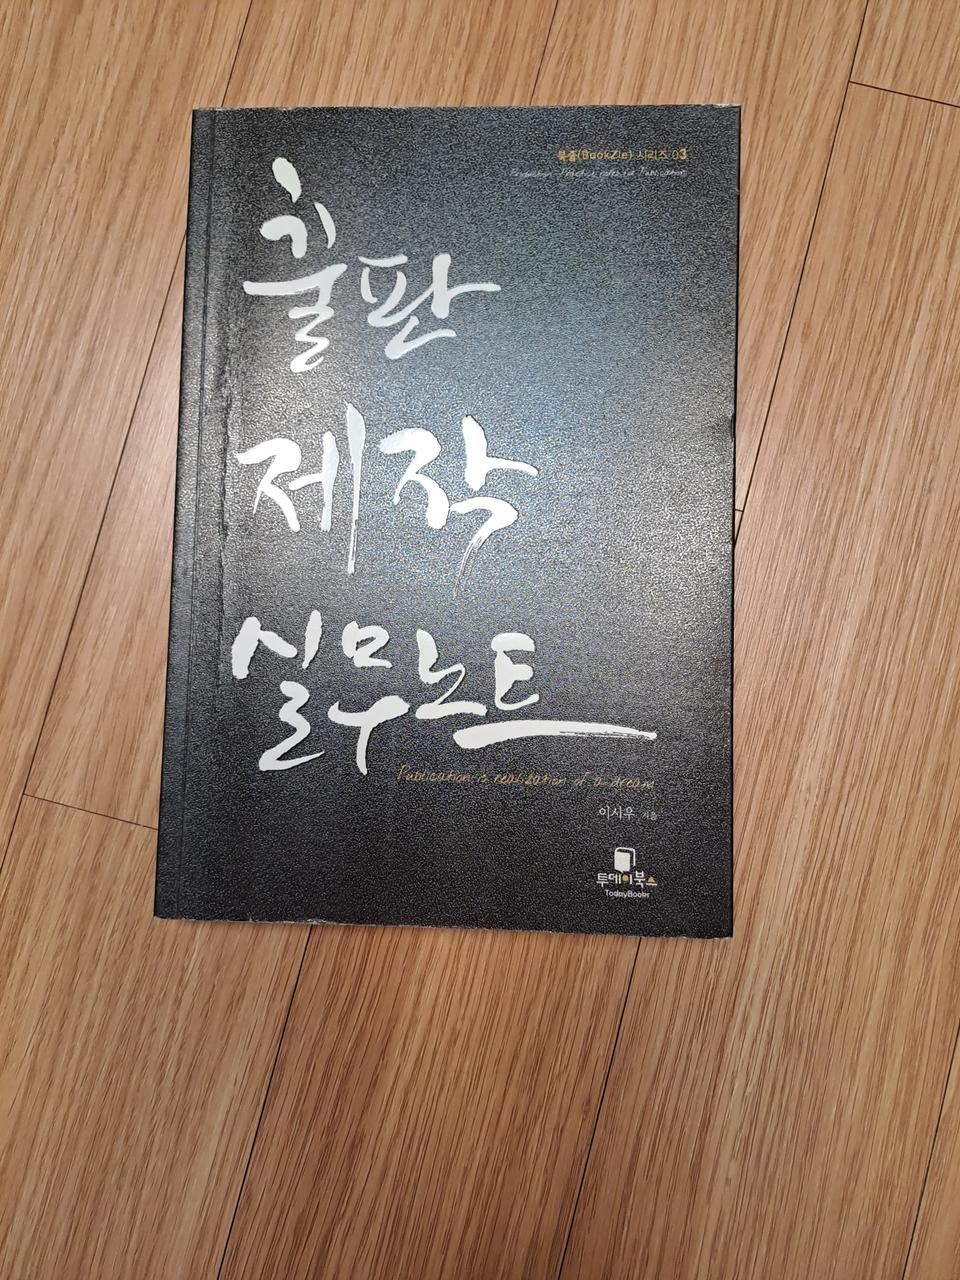 북즐(BookZle) 시리즈 03
Production Practice notes for Publication
출판
제작
실무노트
Publication is realization of a dream
이시우 지음
투데이북스
TodayBooks